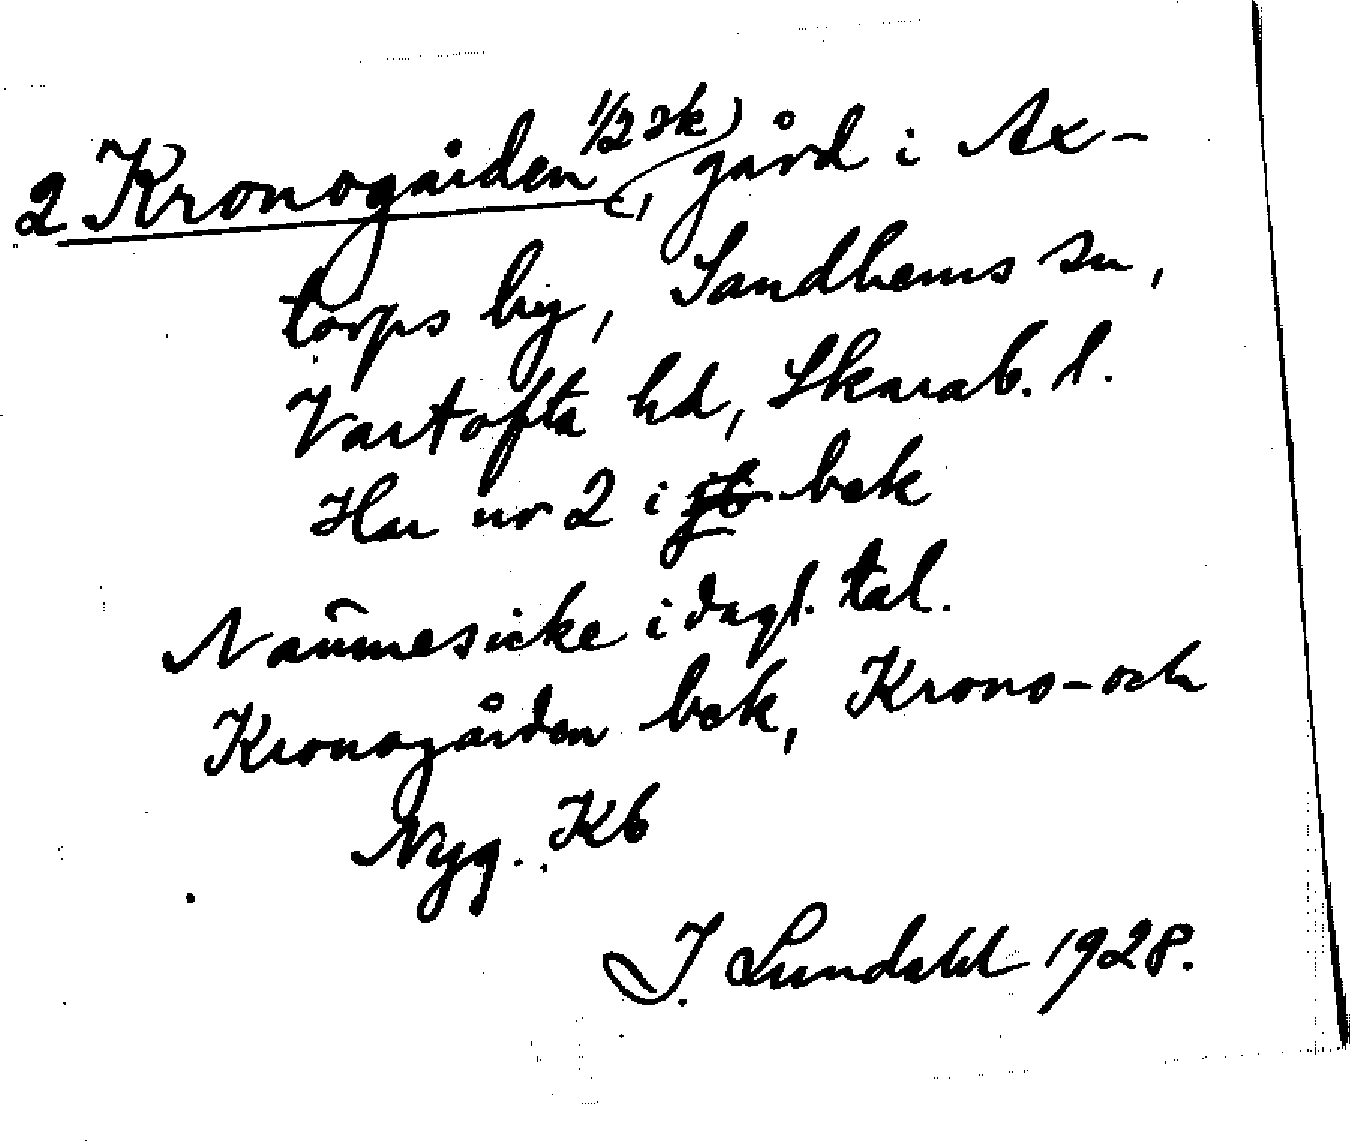 2 Kronogården 1/2 sk), gård i Ax-
torps by, Sandhems sn,
Vartofta hd, Skarab. l.
Har nr 2 i jb. bek
Namnes icke i dagl. tal.
Kronogården bek, Krono- och
Nyg. Kb
I. Lundahl 1928.